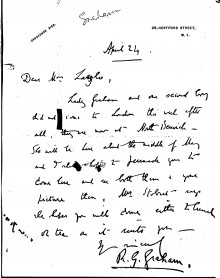 Graham
GROSVENOR
29, HERTFORD STREET,
W. 1.
April 24
Dear Mr
Lady Graham and our second boy
did not come to London this week after
all, they are now at North Berwick –
She will be here about the middle of May
and I also hope to persuade you to
come here and see both them & your
picture them. Mrs says
she hopes you will come either to lunch
or tea as it suits you –
Yrs sincerely
R. G. Graham.